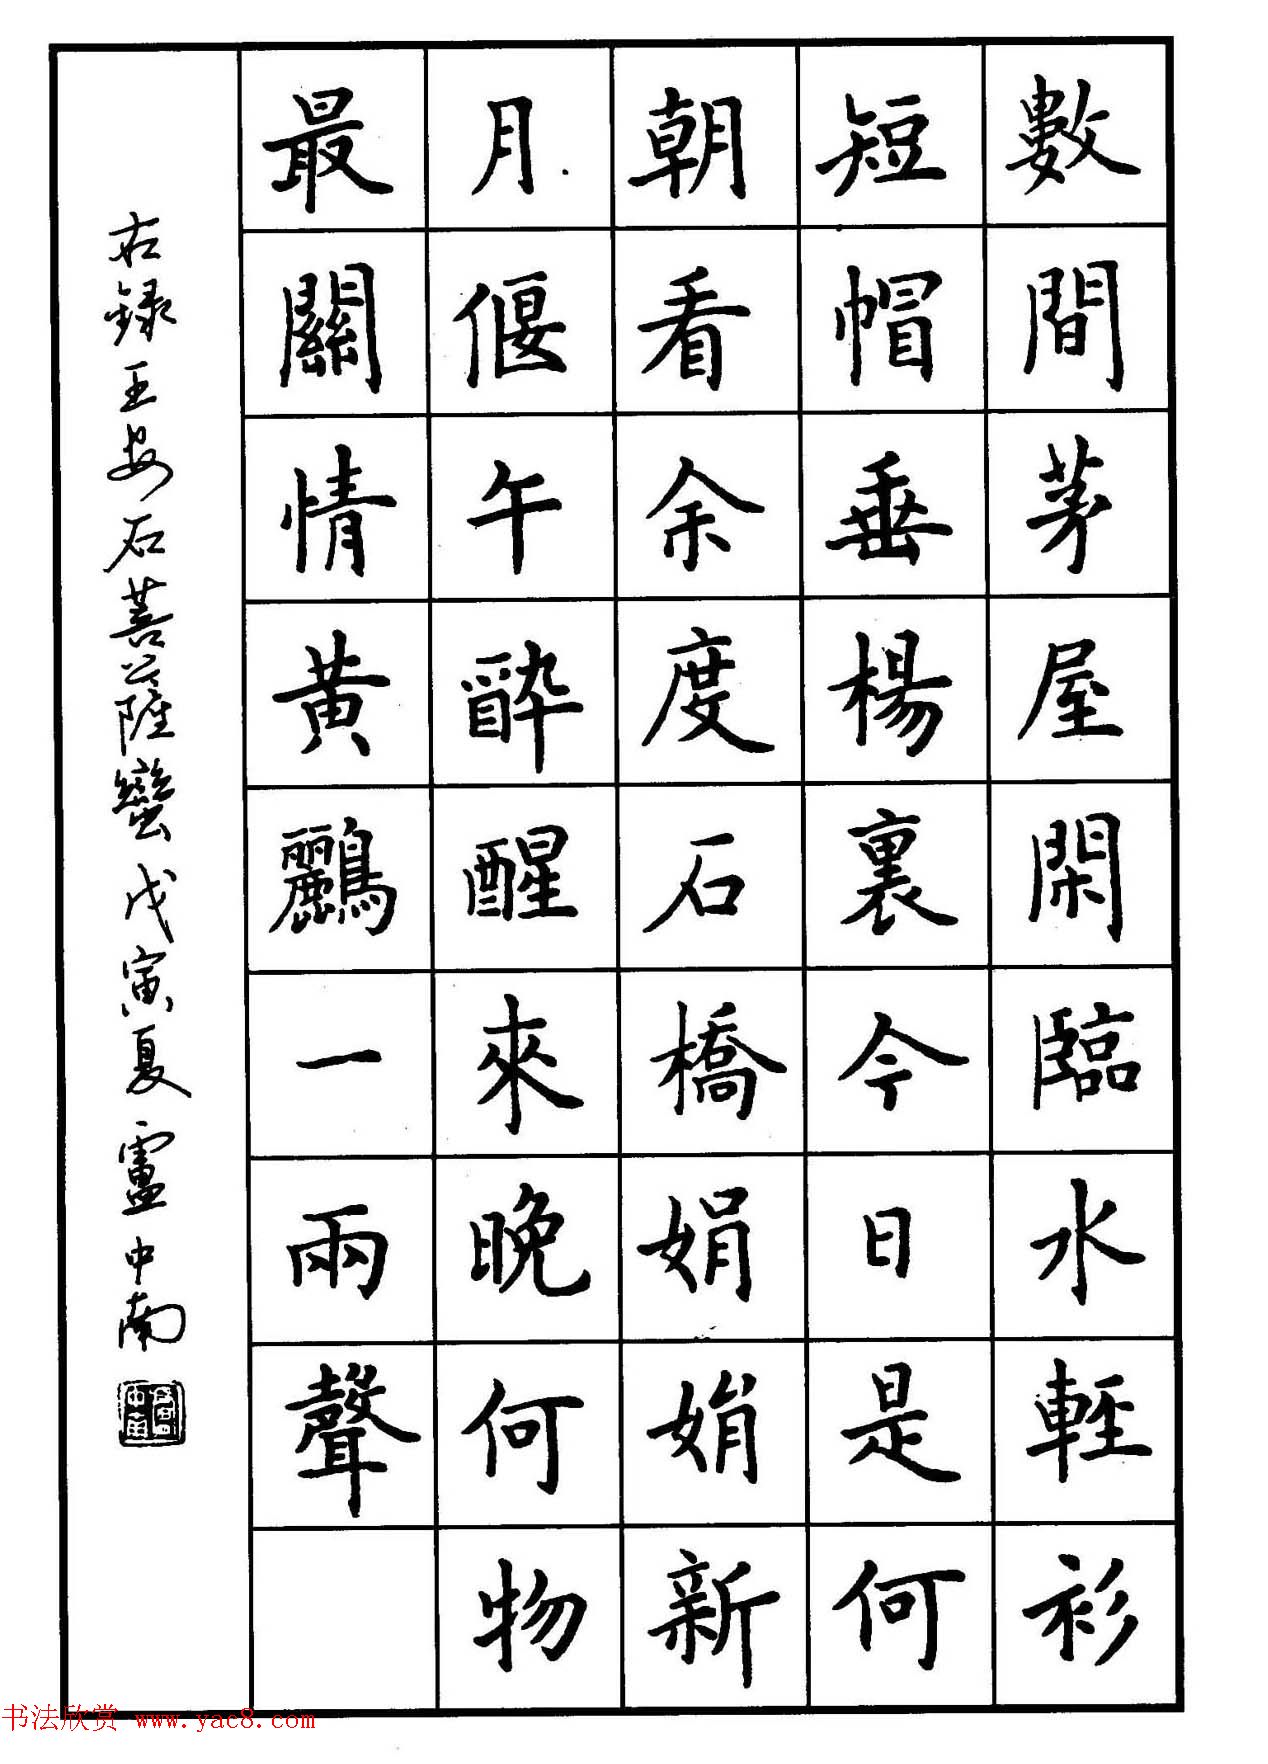 數間茅屋閑臨水輕衫
短帽垂楊裏今日是何
朝看余度石橋娟娟新
月偃午醉醒來晚何物
最關情黃鸝一兩聲
右録王安石菩薩蠻戊寅夏盧中南
书法欣赏 www.yac8.com